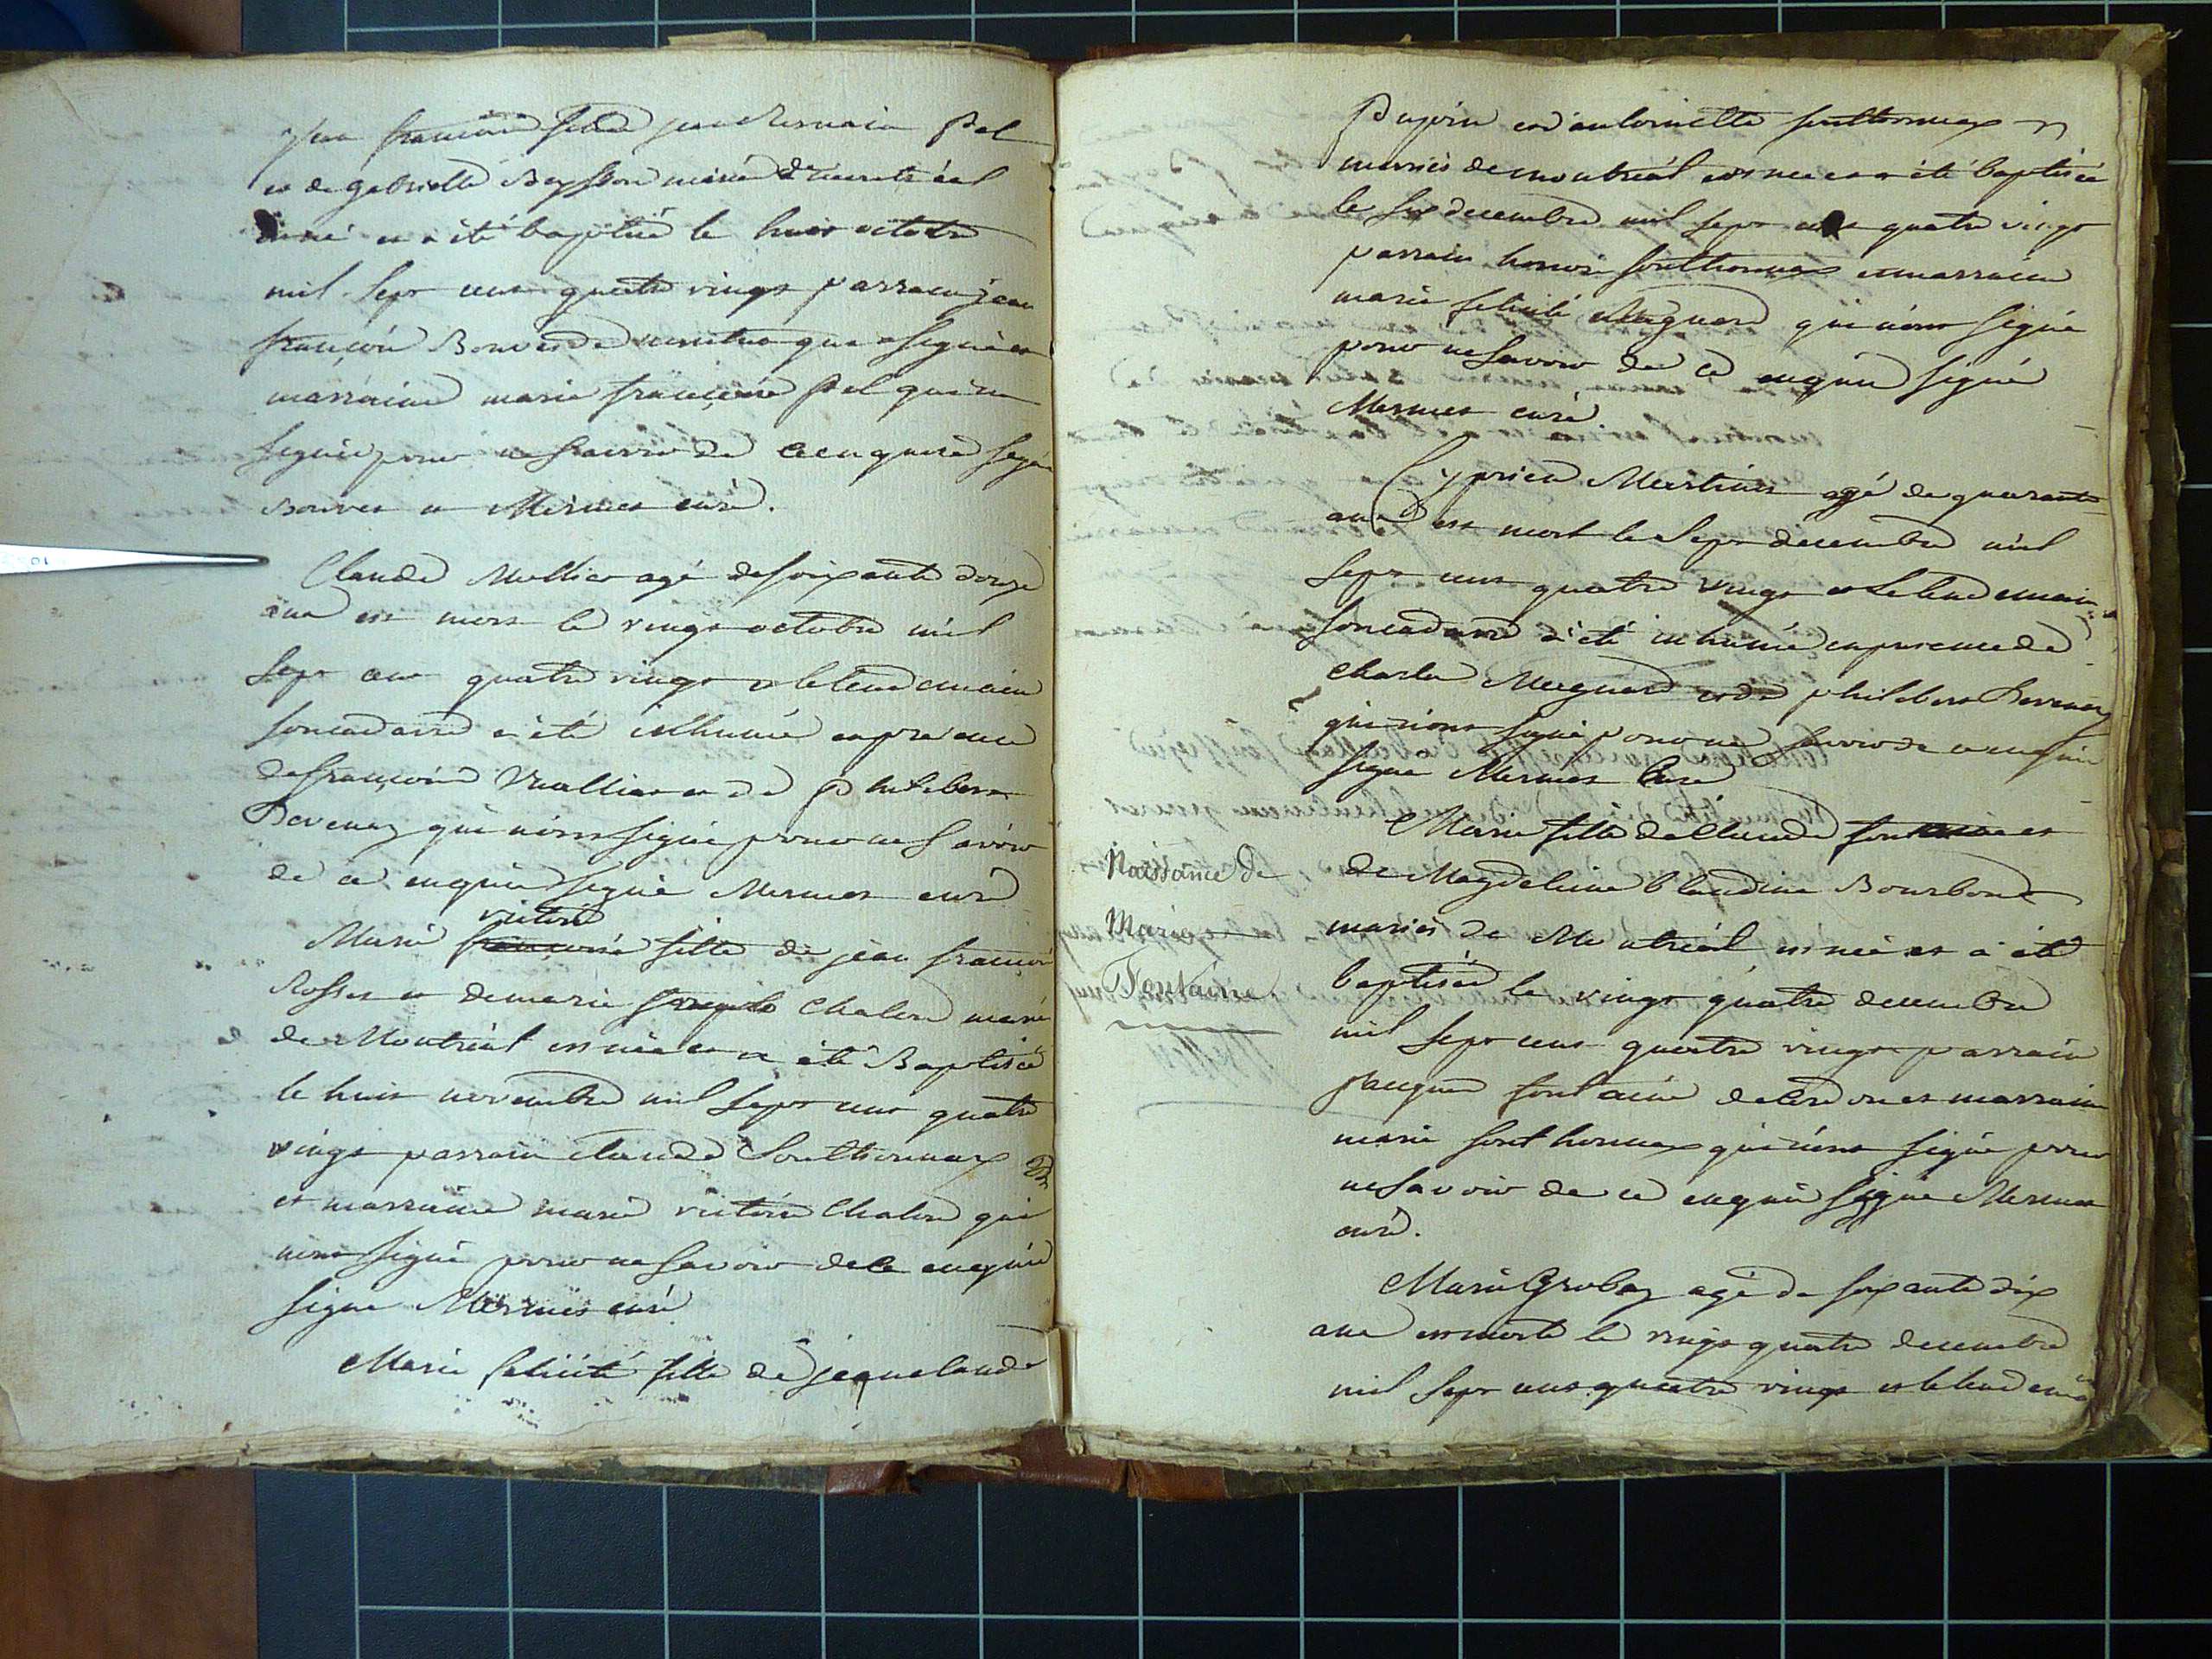 jean françois fils de jean Pel
et de gabrielle mariés de montréal
est né et a été baptisé le huit octobre
mil sept cent quatre vingt parrain jean
françois Bouvet de qui a signé et
marraine marie françoise Pel qui n'a
signé pour ne savoir de ce enquise signé
Bouvet et Mermet curé.
Claude Mollier agé de soixante douze
ans est mort le vingt octobre mil
sept cent quatre vingt et le lendemain
son cadavre a été inhumé en presence
de françois Mollier et de philibert
Devenay qui n'ont signé pour ne savoir
de ce enquis signé Mermet curé
victoire
Marie françoise fille de jean françois
Rosset et de marie Chalere mariés
de Montréal est née et a été Baptisée
le huit novembre mil sept cent quatre
vingt parrain claude Sonthonnax
et marraine marie victoire Chalere qui
n'ont signé pour ne savoir de ce enquis
signé Mermet curé
Marie felicité fille de jean claude
Pupin et d'antoinette sonthonnax
mariés de montréal est née et a été baptisée
le six decembre mil sept cent quatre vingt
parrain sonthonnax et marraine
marie felicité Maignard qui n'ont signé
pour ne savoir de ce enquis signé
Mermet curé
Cyprien Martinet agé de quarante
ans est mort le sept decembre mil
sept cent quatre vingt et le lendemain
son cadavre a été inhumé en presence de
charles Maignard et de philibert Devenay
qui n'ont signé pour ne savoir de ce enquis
signé Mermet Curé
Marie fille de Claude fontaine et
Naissance de
Marie
Fontaine
de Magdeleine blandine Bourbon
mariés de Montréal est née et a été
baptisée le vingt quatre decembre
mil sept cent quatre vingt parrain
jacques fontaine et marraine
marie sonthonnax qui n'ont signé pour
ne savoir de ce enquis signé Mermet
curé.
Marie Grobaz agé de soixante dix
ans est morte le vingt quatre decembre
mil sept cent quatre vingt et le lendemain